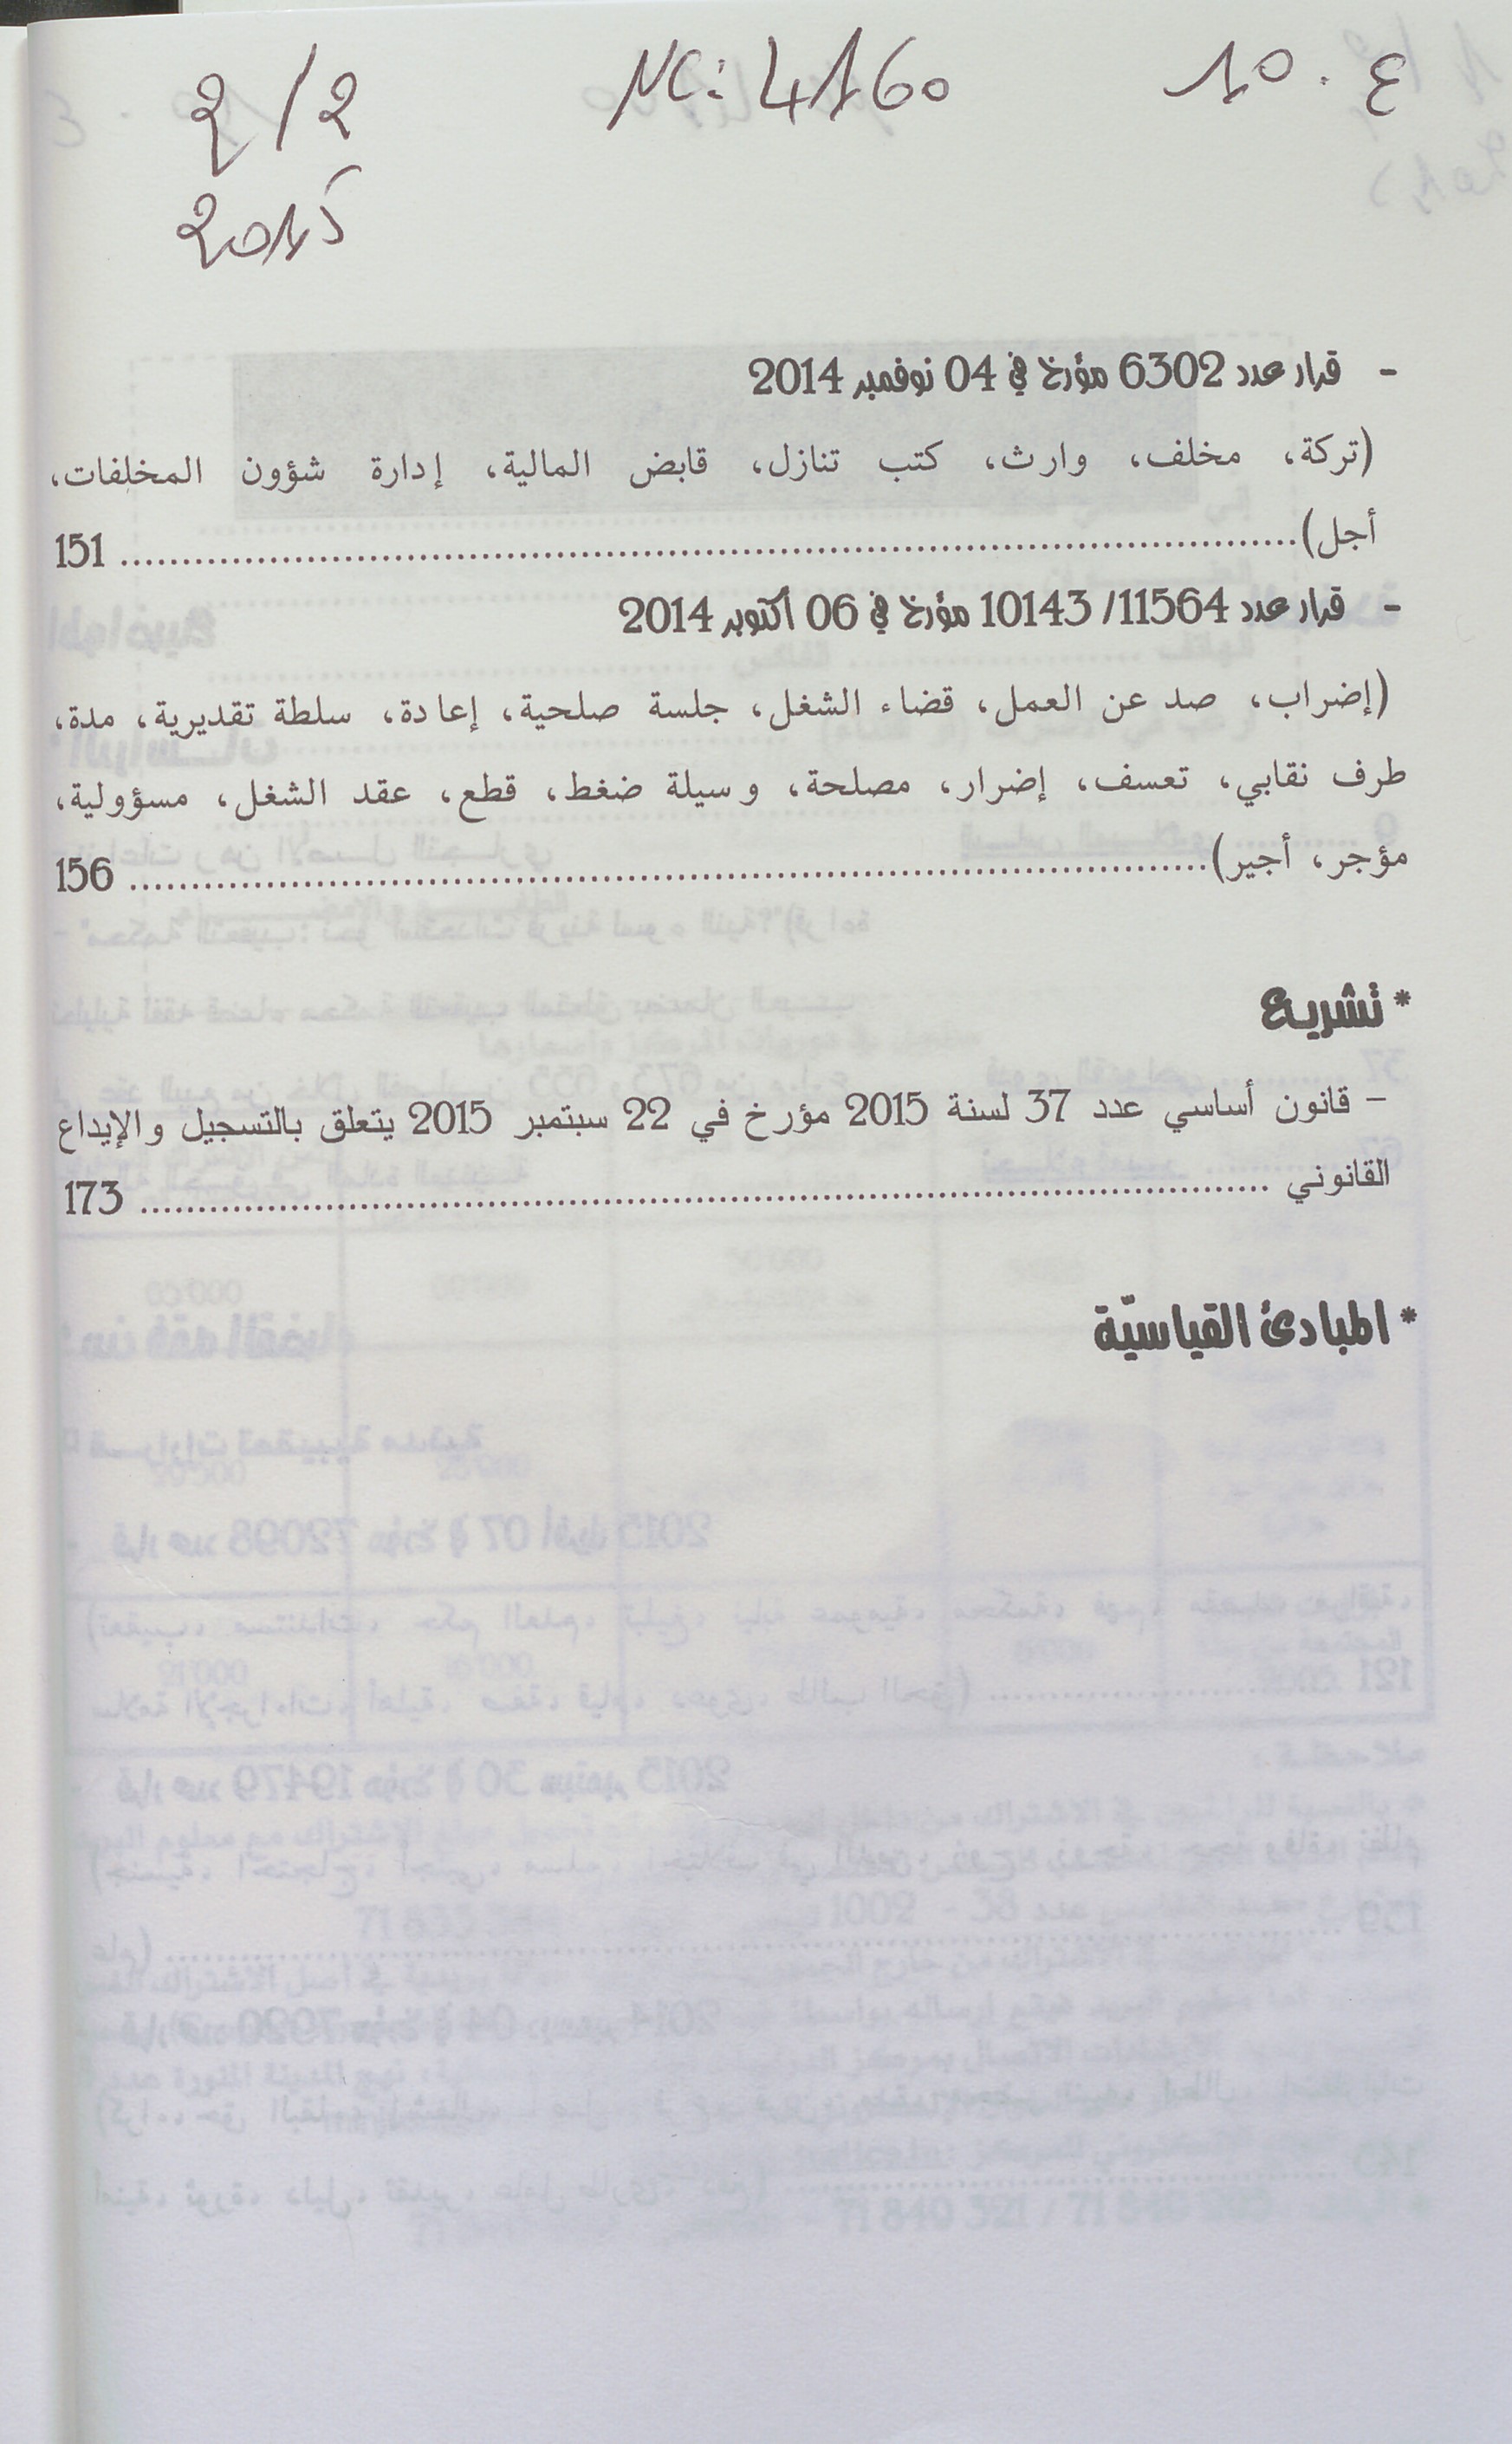 ع . 10
NC: 4160
2/2
2015
- قرار عدد 6302 مؤرخ في 04 نوفمبر 2014
(تركة، مخلف، وارث، كتب تنازل، قابض المالية، إدارة شؤون المخلفات،
أجل)........................................................ 151
- قرار عدد 11564/ 10143 مؤرخ في 06 أكتوبر 2014
(إضراب، صد عن العمل، قضاء الشغل، جلسة صلحية، إعادة، سلطة تقديرية، مدة،
طرف نقابي، تعسف، إضرار، مصلحة، وسيلة ضغط، قطع، عقد الشغل، مسؤولية،
مؤجر، أجير)........................................................ 156
* تشريع
– قانون أساسي عدد 37 لسنة 2015 مؤرخ في 22 سبتمبر 2015 يتعلق بالتسجيل والإيداع
القانوني ........................................................ 173
* المبادئ القياسيّة